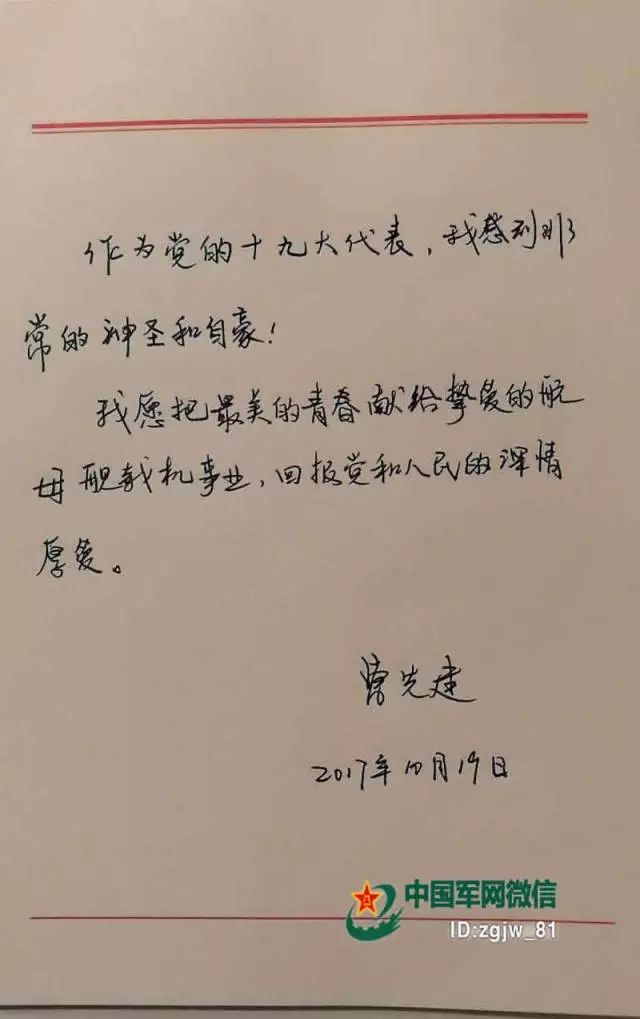 作为党的十九大代表，我感到非
常的神圣和自豪！
我愿把最美的青春献给挚爱的航
母舰载机事业，回报党和人民的深情
厚爱。
曹先建
2017年10月19日
中国军网微信
ID:zgjw_81